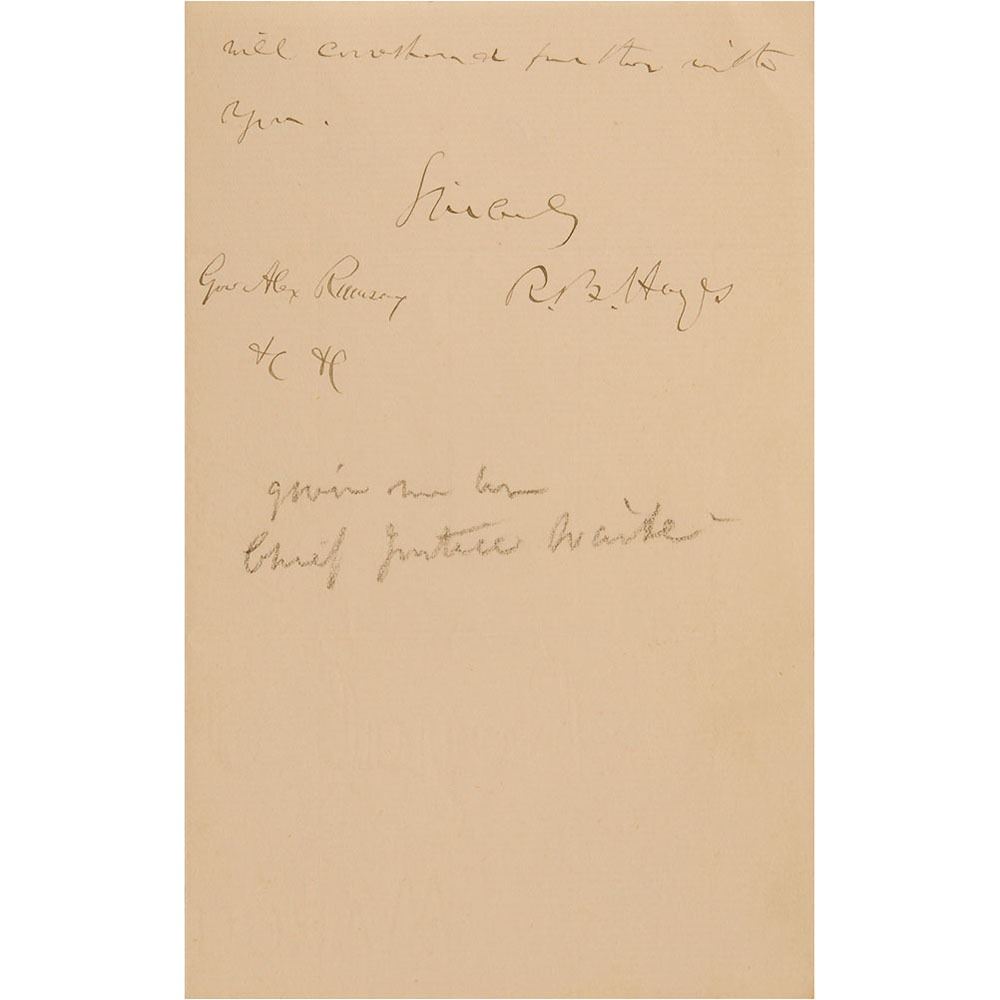 will correspond further with
you.
Sincerely
R. B. Hayes
Gov Alex Ramsey
&c &c
Chief Justice Waite